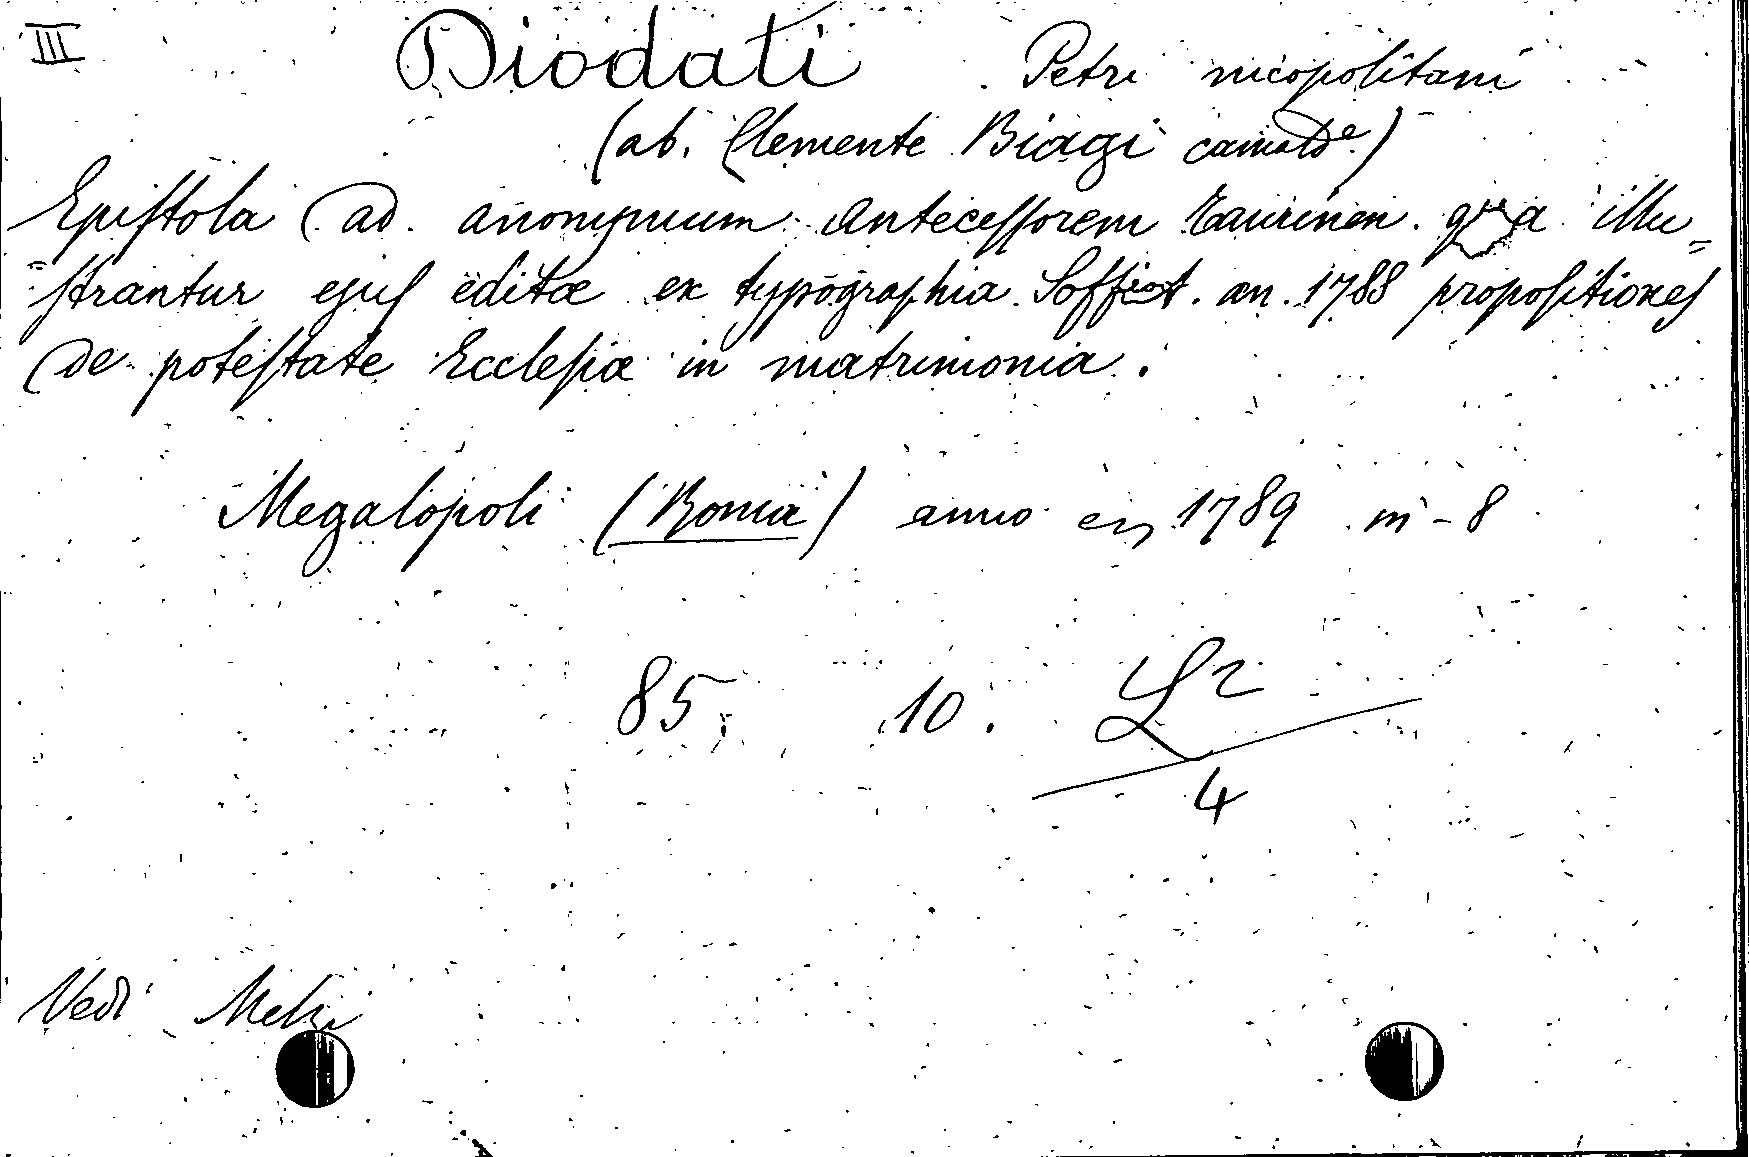 III Diodati Petri nicopolitani
(ab. Clemente Biagi camalde)
Epistola ad anonymum antecessorem taurinen. qua illu=
strantur ejus editæ ex typographia Soffiet. an. 1788 propositiones
de potestate Ecclesiæ in matrimonia.
Megalopoli (Roma) anno 1789 in-8
85. 10. L 2
4
Vedi Melzi